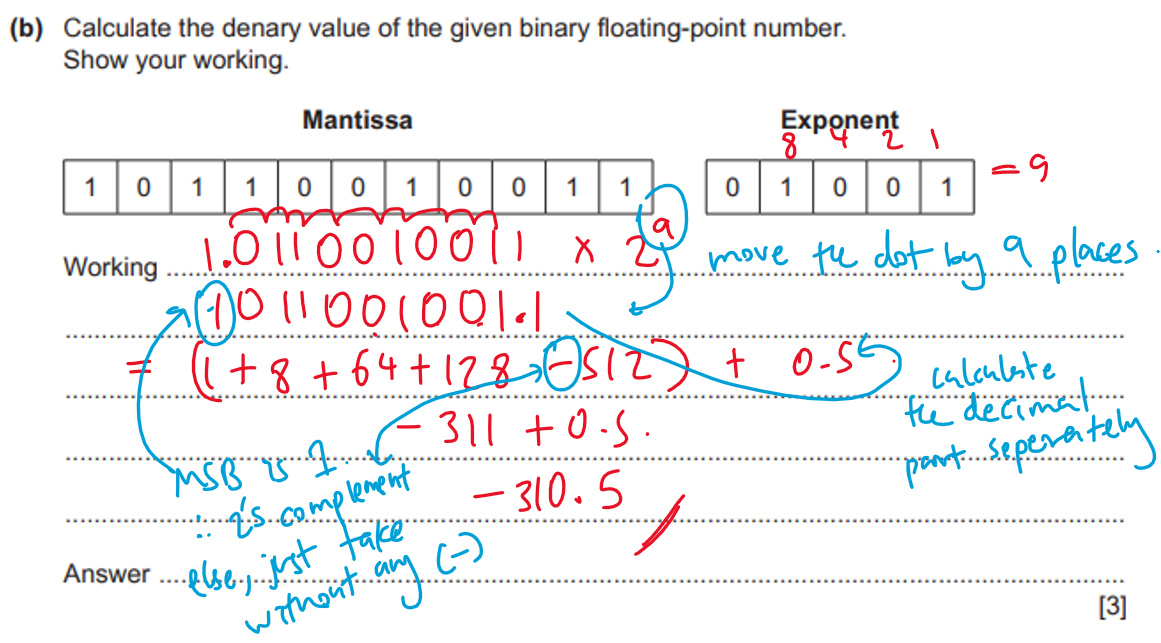 (b) Calculate the denary value of the given binary floating-point number.
Show your working.
Mantissa Exponent
8 4 2 1
1 0 1 1 0 0 1 0 0 1 1 0 1 0 0 1 = 9
Working 1.0110010011 × 2^9 move the dot by 9 places.
1011001001.1
= (1 + 8 + 64 + 128 - 512) + 0.5
calculate
the decimal
part seperately
- 311 + 0.5.
MSB is 1.
∴ 2's complement
else, just take
without any (-)
- 310.5
Answer
[3]